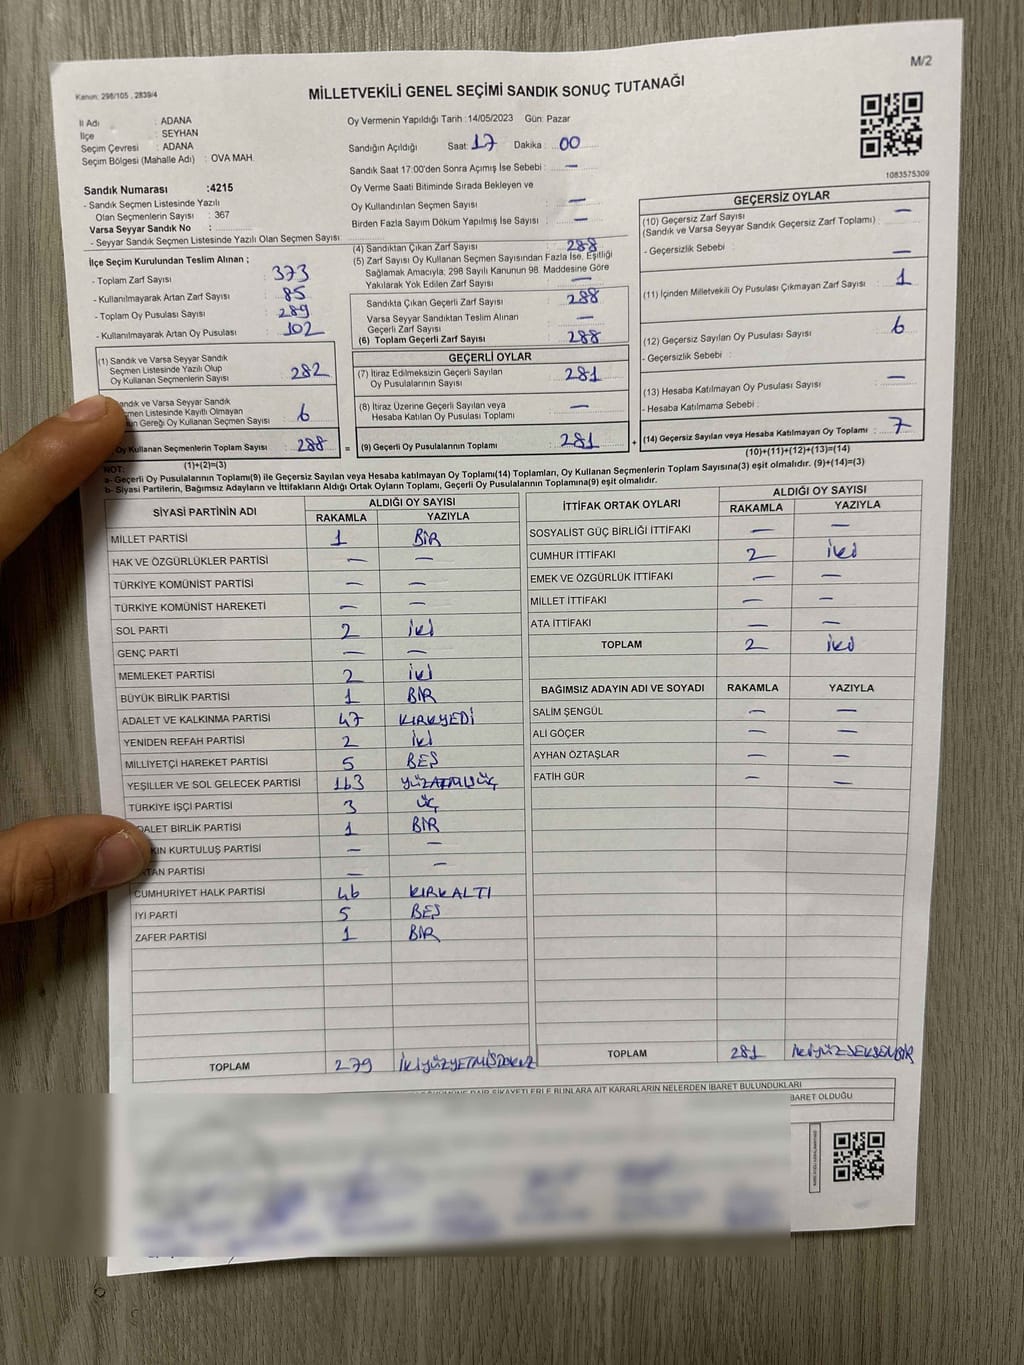 M/2
Kanun: 298/105 , 2839/4
MİLLETVEKİLİ GENEL SEÇİMİ SANDIK SONUÇ TUTANAĞI
İl Adı : ADANA
İlçe : SEYHAN
Seçim Çevresi : ADANA
Seçim Bölgesi (Mahalle Adı) : OVA MAH.
Sandık Numarası :4215
- Sandık Seçmen Listesinde Yazılı
Olan Seçmenlerin Sayısı : 367
Varsa Seyyar Sandık No :
- Seyyar Sandık Seçmen Listesinde Yazılı Olan Seçmen Sayısı
Oy Vermenin Yapıldığı Tarih :14/05/2023 Gün: Pazar
Sandığın Açıldığı Saat : 17 Dakika : 00
Sandık Saat 17:00'den Sonra Açımış İse Sebebi : —
Oy Verme Saati Bitiminde Sırada Bekleyen ve
Oy Kullandırılan Seçmen Sayısı : —
Birden Fazla Sayım Döküm Yapılmış İse Sayısı : —
1083575309
İlçe Seçim Kurulundan Teslim Alınan ;
- Toplam Zarf Sayısı : 373
- Kullanılmayarak Artan Zarf Sayısı : 85
- Toplam Oy Pusulası Sayısı : 289
- Kullanılmayarak Artan Oy Pusulası : 102
(1) Sandık ve Varsa Seyyar Sandık
Seçmen Listesinde Yazılı Olup
Oy Kullanan Seçmenlerin Sayısı : 282
andık ve Varsa Seyyar Sandık
men Listesinde Kayıtlı Olmayan
un Gereği Oy Kullanan Seçmen Sayısı : 6
Oy Kullanan Seçmenlerin Toplam Sayısı : 288
(1)+(2)=(3)
(4) Sandıktan Çıkan Zarf Sayısı : 288
(5) Zarf Sayısı Oy Kullanan Seçmen Sayısından Fazla İse, Eşitliği
Sağlamak Amacıyla; 298 Sayılı Kanunun 98. Maddesine Göre
Yakılarak Yok Edilen Zarf Sayısı : —
Sandıkta Çıkan Geçerli Zarf Sayısı : 288
Varsa Seyyar Sandıktan Teslim Alınan
Geçerli Zarf Sayısı : —
(6) Toplam Geçerli Zarf Sayısı : 288
GEÇERLİ OYLAR
(7) İtiraz Edilmeksizin Geçerli Sayılan
Oy Pusulalarının Sayısı : 281
(8) İtiraz Üzerine Geçerli Sayılan veya
Hesaba Katılan Oy Pusulası Toplamı : —
= (9) Geçerli Oy Pusulalarının Toplamı : 281 +
GEÇERSİZ OYLAR
(10) Geçersiz Zarf Sayısı : —
(Sandık ve Varsa Seyyar Sandık Geçersiz Zarf Toplamı)
- Geçersizlik Sebebi : —
(11) İçinden Milletvekili Oy Pusulası Çıkmayan Zarf Sayısı : 1
(12) Geçersiz Sayılan Oy Pusulası Sayısı : 6
- Geçersizlik Sebebi :
(13) Hesaba Katılmayan Oy Pusulası Sayısı : —
- Hesaba Katılmama Sebebi :
(14) Geçersiz Sayılan veya Hesaba Katılmayan Oy Toplamı : 7
(10)+(11)+(12)+(13)=(14)
NOT:
a- Geçerli Oy Pusulalarının Toplamı(9) ile Geçersiz Sayılan veya Hesaba katılmayan Oy Toplamı(14) Toplamları, Oy Kullanan Seçmenlerin Toplam Sayısına(3) eşit olmalıdır. (9)+(14)=(3)
b- Siyasi Partilerin, Bağımsız Adayların ve İttifakların Aldığı Ortak Oyların Toplamı, Geçerli Oy Pusulalarının Toplamına(9) eşit olmalıdır.
SİYASİ PARTİNİN ADI ALDIĞI OY SAYISI
RAKAMLA YAZIYLA
MİLLET PARTİSİ 1 BİR
HAK VE ÖZGÜRLÜKLER PARTİSİ — —
TÜRKİYE KOMÜNİST PARTİSİ — —
TÜRKİYE KOMÜNİST HAREKETİ — —
SOL PARTİ 2 İKİ
GENÇ PARTİ — —
MEMLEKET PARTİSİ 2 İKİ
BÜYÜK BİRLİK PARTİSİ 1 BİR
ADALET VE KALKINMA PARTİSİ 47 KIRKYEDİ
YENİDEN REFAH PARTİSİ 2 İKİ
MİLLİYETÇİ HAREKET PARTİSİ 5 BEŞ
YEŞİLLER VE SOL GELECEK PARTİSİ 163 YÜZATMIŞÜÇ
TÜRKİYE İŞÇİ PARTİSİ 3 ÜÇ
DALET BİRLİK PARTİSİ 1 BİR
KIN KURTULUŞ PARTİSİ — —
TAN PARTİSİ — —
CUMHURİYET HALK PARTİSİ 46 KIRKALTI
İYİ PARTİ 5 BEŞ
ZAFER PARTİSİ 1 BİR
TOPLAM 279 İKİYÜZYETMİŞDOKUZ
İTTİFAK ORTAK OYLARI ALDIĞI OY SAYISI
RAKAMLA YAZIYLA
SOSYALİST GÜÇ BİRLİĞİ İTTİFAKI — —
CUMHUR İTTİFAKI 2 İKİ
EMEK VE ÖZGÜRLÜK İTTİFAKI — —
MİLLET İTTİFAKI — —
ATA İTTİFAKI — —
TOPLAM 2 İKİ
BAĞIMSIZ ADAYIN ADI VE SOYADI RAKAMLA YAZIYLA
SALİM ŞENGÜL — —
ALİ GÖÇER — —
AYHAN ÖZTAŞLAR — —
FATİH GÜR — —
TOPLAM 281 İKİYÜZSEKSENBİR
ŞİKAYETLERLE BUNLARA AİT KARARLARIN NELERDEN İBARET BULUNDUKLARI
BARET OLDUĞU